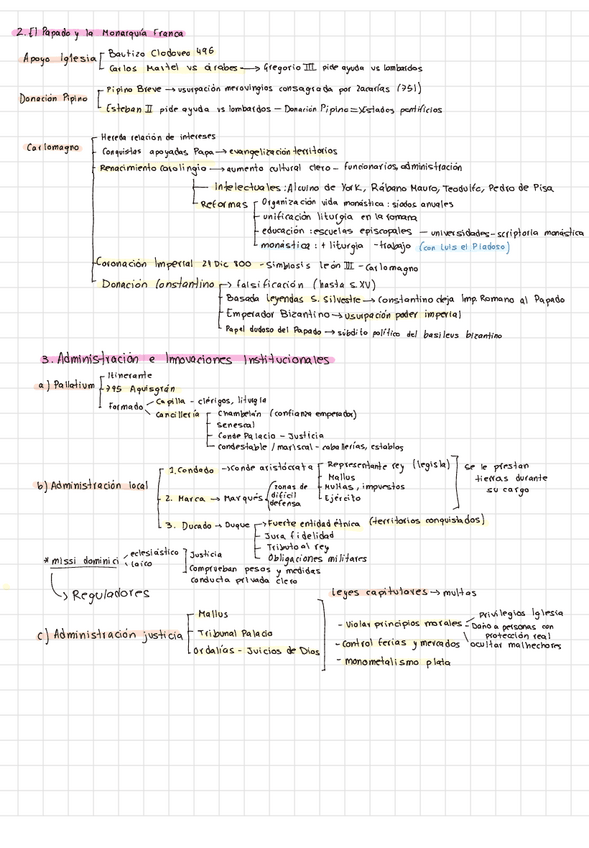 2. El Papado y la Monarquía Franca
Apoyo Iglesia
Bautizo Clodoveo 496
Carlos Martel vs árabes → Gregorio III pide ayuda vs lombardos
Donación Pipino
Pipino Breve → usurpación merovingios consagrada por Zacarías (751)
Esteban II pide ayuda vs lombardos - Donación Pipino = Estados pontificios
Carlomagno
Hereda relación de intereses
Conquistas apoyadas Papa → evangelización territorios
Renacimiento carolingio → aumento cultural clero - funcionarios, administración
Intelectuales: Alcuino de York, Rábano Mauro, Teodulfo, Pedro de Pisa
Reformas
Organización vida monástica: siodos anuales
unificación liturgia en la romana
educación: escuelas episcopales - universidades - scriptoria monástica
monástica: + liturgia - trabajo (con Luis el Piadoso)
Coronación Imperial 21 Dic 800 - Simbiosis león III - Carlomagno
Donación Constantino
falsificación (hasta s. XV)
Basada leyendas S. Silvestre → Constantino deja Imp. Romano al Papado
Emperador Bizantino → usurpación poder imperial
Papel dudoso del Papado → súbdito político del basileus bizantino
3. Administración e Innovaciones Institucionales
a) Pallatium
Itinerante
795 Aquisgrán
Formado
Capilla - clérigos, liturgia
Cancillería
Chambelán (confianza emperador)
Senescal
Conde Palacio - Justicia
condestable / mariscal - caballerías, establos
b) Administración local
1. Condado → conde aristócrata
Representante rey (legisla)
Mallus
Multas, impuestos
Ejército
se le prestan tierras durante su cargo
2. Marca → Marqués (zonas de difícil defensa
3. Ducado → Duque
Fuerte entidad étnica (territorios conquistados)
Jura fidelidad
Tributo al rey
Obligaciones militares
* missi dominici
eclesiástico
laico
Justicia
Comprueban pesos y medidas
conducta privada clero
↳ Reguladores
c) Administración justicia
Mallus
Tribunal Palacio
Ordalías - Juicios de Dios
Leyes capitulares → multas
- Violar principios morales
privilegios Iglesia
Daño a personas con protección real
ocultar malhechores
- Control ferias y mercados
- monometalismo plata